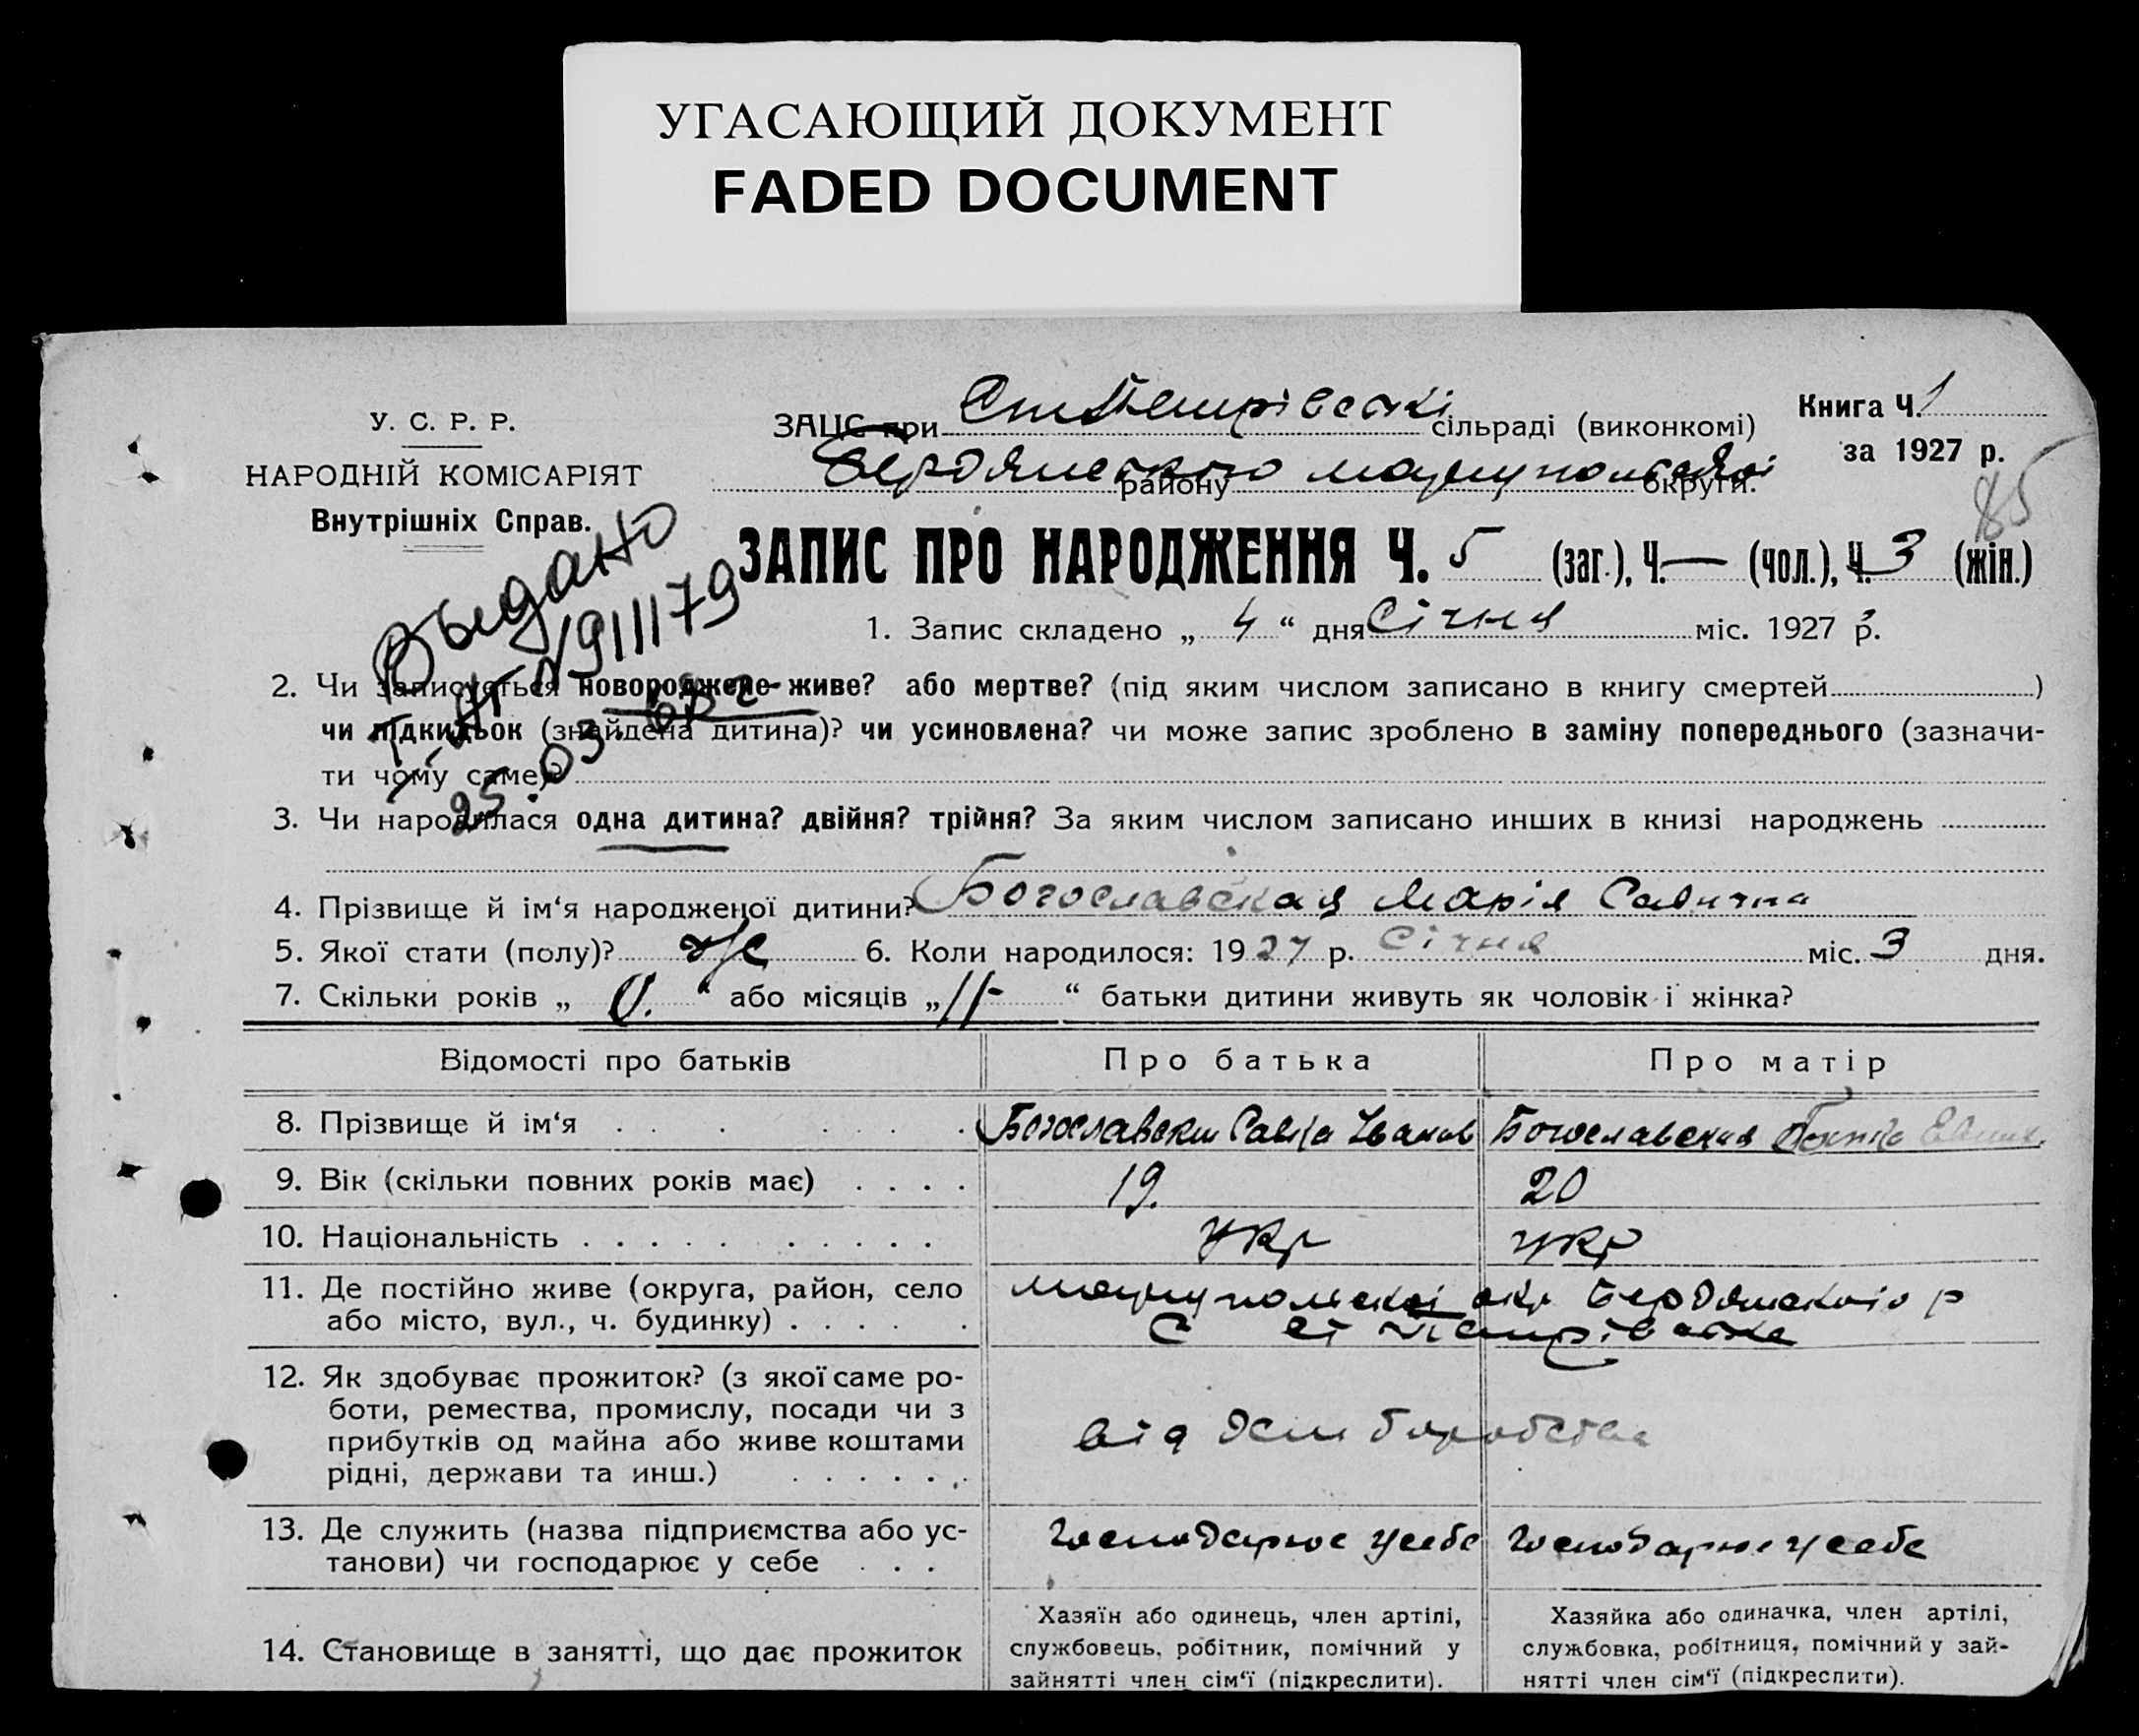 УГАСАЮЩИЙ ДОКУМЕНТ
FADED DOCUMENT
У. С. Р. Р.
НАРОДНІЙ КОМІСАРІЯТ
Внутрішніх Справ.
ЗАЦС при СтПетрівські сільраді (виконкомі)
Бердянського району маріупольської округи.
Книга Ч. 1
за 1927 р.
85
Выдано
№911179
25.03.
ЗАПИС ПРО НАРОДЖЕННЯ Ч. 5 (заг.), Ч. — (чол.), Ч. 3 (жін.)
1. Запис складено „ 4 “ дня Січня міс. 1927 р.
2. Чи записується новороджене живе? або мертве? (під яким числом записано в книгу смертей )
чи підкидьок (знайдена дитина)? чи усиновлена? чи може запис зроблено в заміну попереднього (зазначи-
ти чому саме)?
3. Чи народилася одна дитина? двійня? трійня? За яким числом записано инших в книзі народжень
4. Прізвище й ім‘я народженої дитини? Богославская Марія Савична
5. Якої стати (полу)? же 6. Коли народилося: 1927 р. Січня міс. 3 дня.
7. Скільки років „ 0. “ або місяців „ 11- “ батьки дитини живуть як чоловік і жінка?
Відомості про батьків Про батька Про матір
8. Прізвище й ім‘я . . . . . . . Богославски Савка Іванов Богославская
9. Вік (скільки повних років має) . . . . 19. 20
10. Національність . . . . . . . . . . укр укр
11. Де постійно живе (округа, район, село
або місто, вул., ч. будинку) . . . . .
маріупольскоі окр Бердянского р
с ст Петрівська
12. Як здобуває прожиток? (з якої саме ро-
боти, ремества, промислу, посади чи з
прибутків од майна або живе коштами
рідні, держави та инш.) . . . . . .
від хліборобства
13. Де служить (назва підприємства або ус-
танови) чи господарює у себе . . .
господарює у себе господарює у себе
14. Становище в занятті, що дає прожиток
Хазяїн або одинець, член артілі,
службовець, робітник, помічний у
зайнятті член сім‘ї (підкреслити).
Хазяйка або одиначка, член артілі,
службовка, робітниця, помічний у зай-
нятті член сім‘ї (підкреслити).